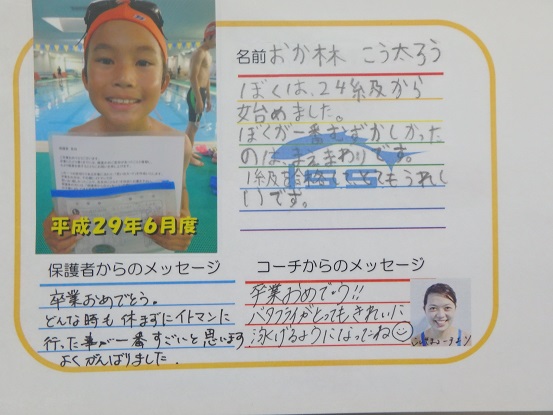 平成29年6月度
名前 おか林 こう太ろう
ぼくは、24級から
始めました。
ぼくが一番むずかしかった
のは、まえまわりです。
1級を合格して、とてもうれし
いです。
保護者からのメッセージ
卒業おめでとう。
どんな時も休まずにイトマンに
行った事が一番すごいと思います
よくがんばりました。
コーチからのメッセージ
卒業おめでっう!!
バタフライがとってもきれいに
泳げるようになったね